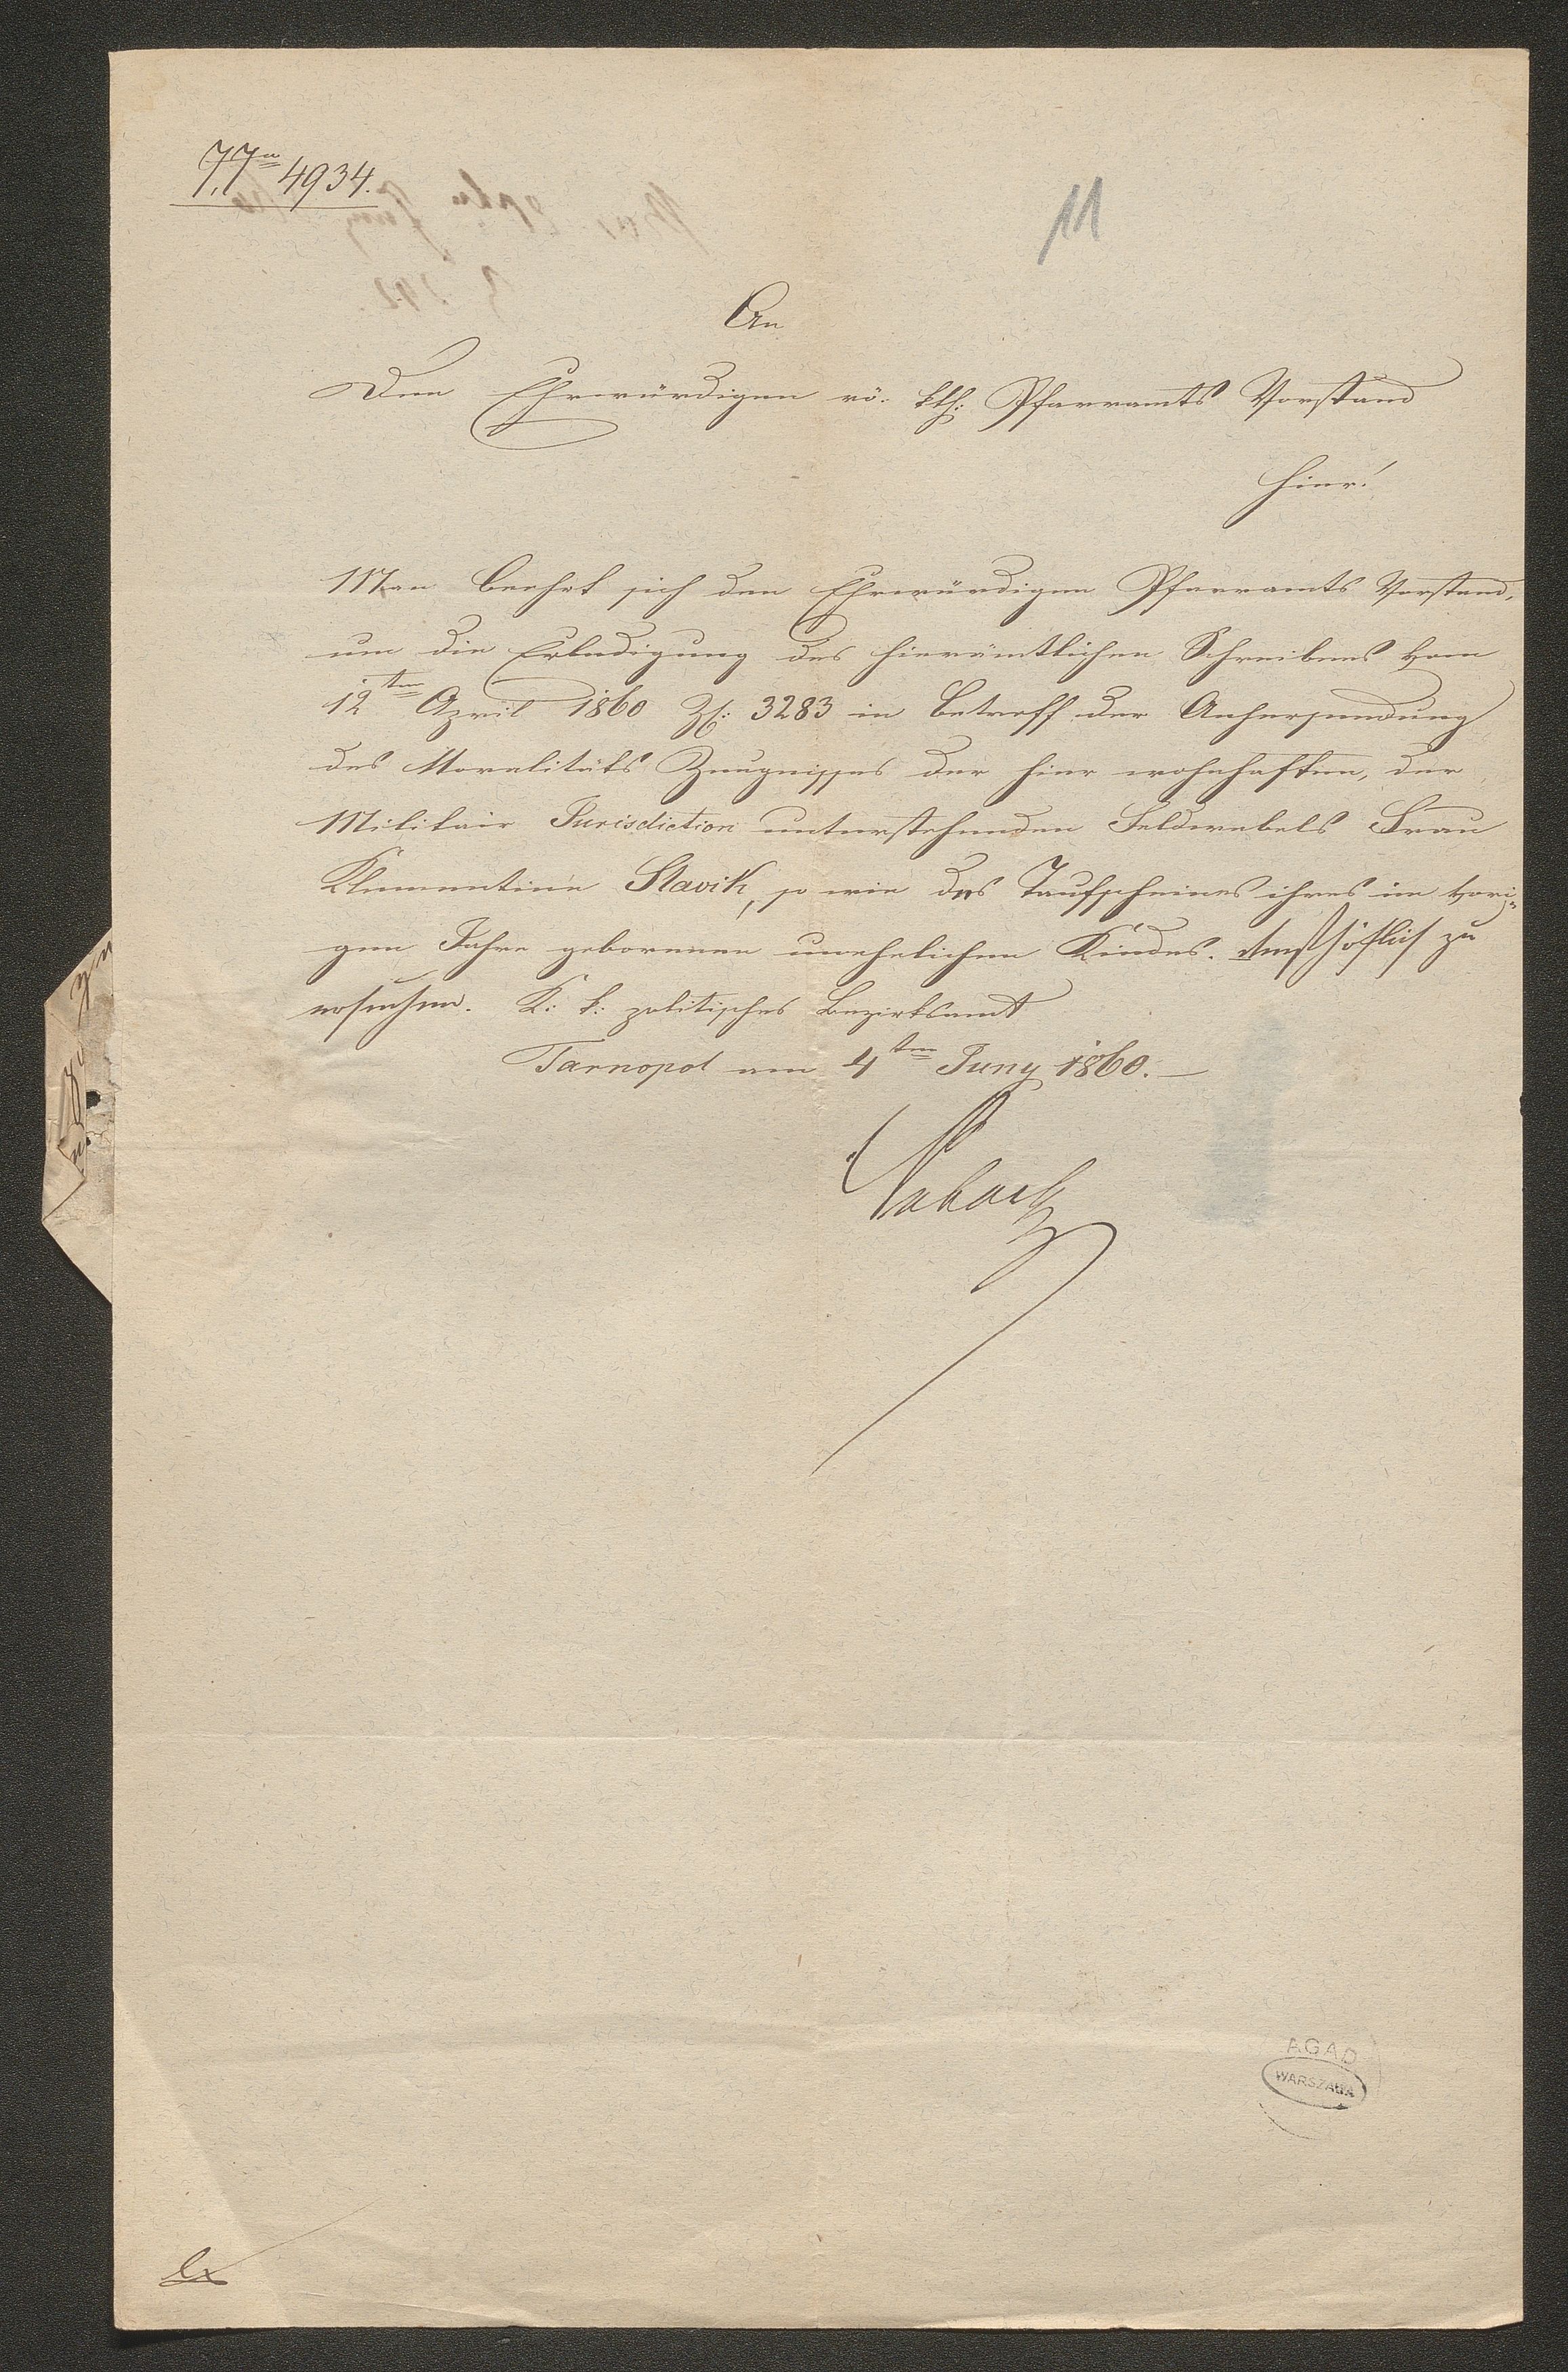 4934.
11
An
Den Ehrwürdigen rö. kth: Pfarramts Vorstand
hier!
Man beehrt sich den Ehrwürdigen Pfarramts Vorstand,
um die Erledigung des hierämtlichen Schreibens vom
12ten April 1860 Zl: 3283 in Betreff der Anhersendung
des Moralitäts Zeugnisses der hier wohnhaften, der
Militair Jurisdiction unterstehenden Feldwebels Frau
Klementine Slavik, so wie des Taufscheines ihres im vori=
gen Jahre geborenen unehelichen Kindes. diensthöflich zu
ersuchen. K: k: politisches Bezirksamt
Tarnopol am 4ten Juny 1860.
AGAD
WARSZAWA